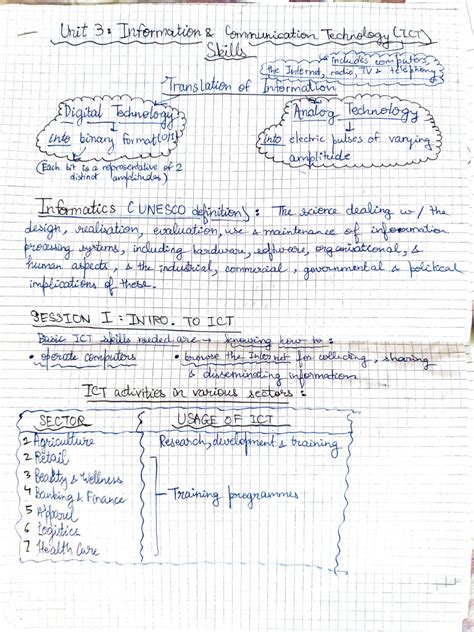 Unit 3: Information & Communication Technology (ICT)
Skills
includes computers,
the Internet, radio, TV & telephony
Translation of Information
Digital Technology
Analog Technology
into binary format(0/1)
into electric pulses of varying
amplitude
(Each bit is a representative of 2
distinct amplitudes)
Informatics (UNESCO definition): The science dealing w/ the
design, realisation, evaluation, use & maintenance of information
processing systems, including hardware, software, organisational, &
human aspects, & the industrial, commercial, governmental & political
implications of these.
SESSION I: INTRO. TO ICT
Basic ICT skills needed are → knowing how to:
• operate computers
• browse the Internet for collecting, sharing
& disseminating information
ICT activities in various sectors:
SECTOR
USAGE OF ICT
1 Agriculture
Research, development & training
2 Retail
3 Beauty & Wellness
4 Banking & Finance
Training programmes
5 Apparel
6 Logistics
7 Health Care